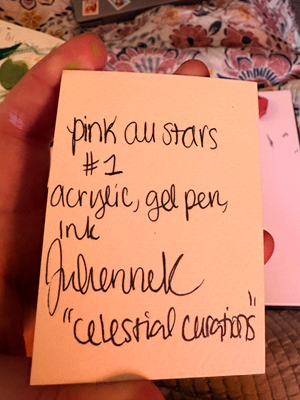 pink all stars
#1
acrylic, gel pen,
ink
JulienneK
"celestial curations"